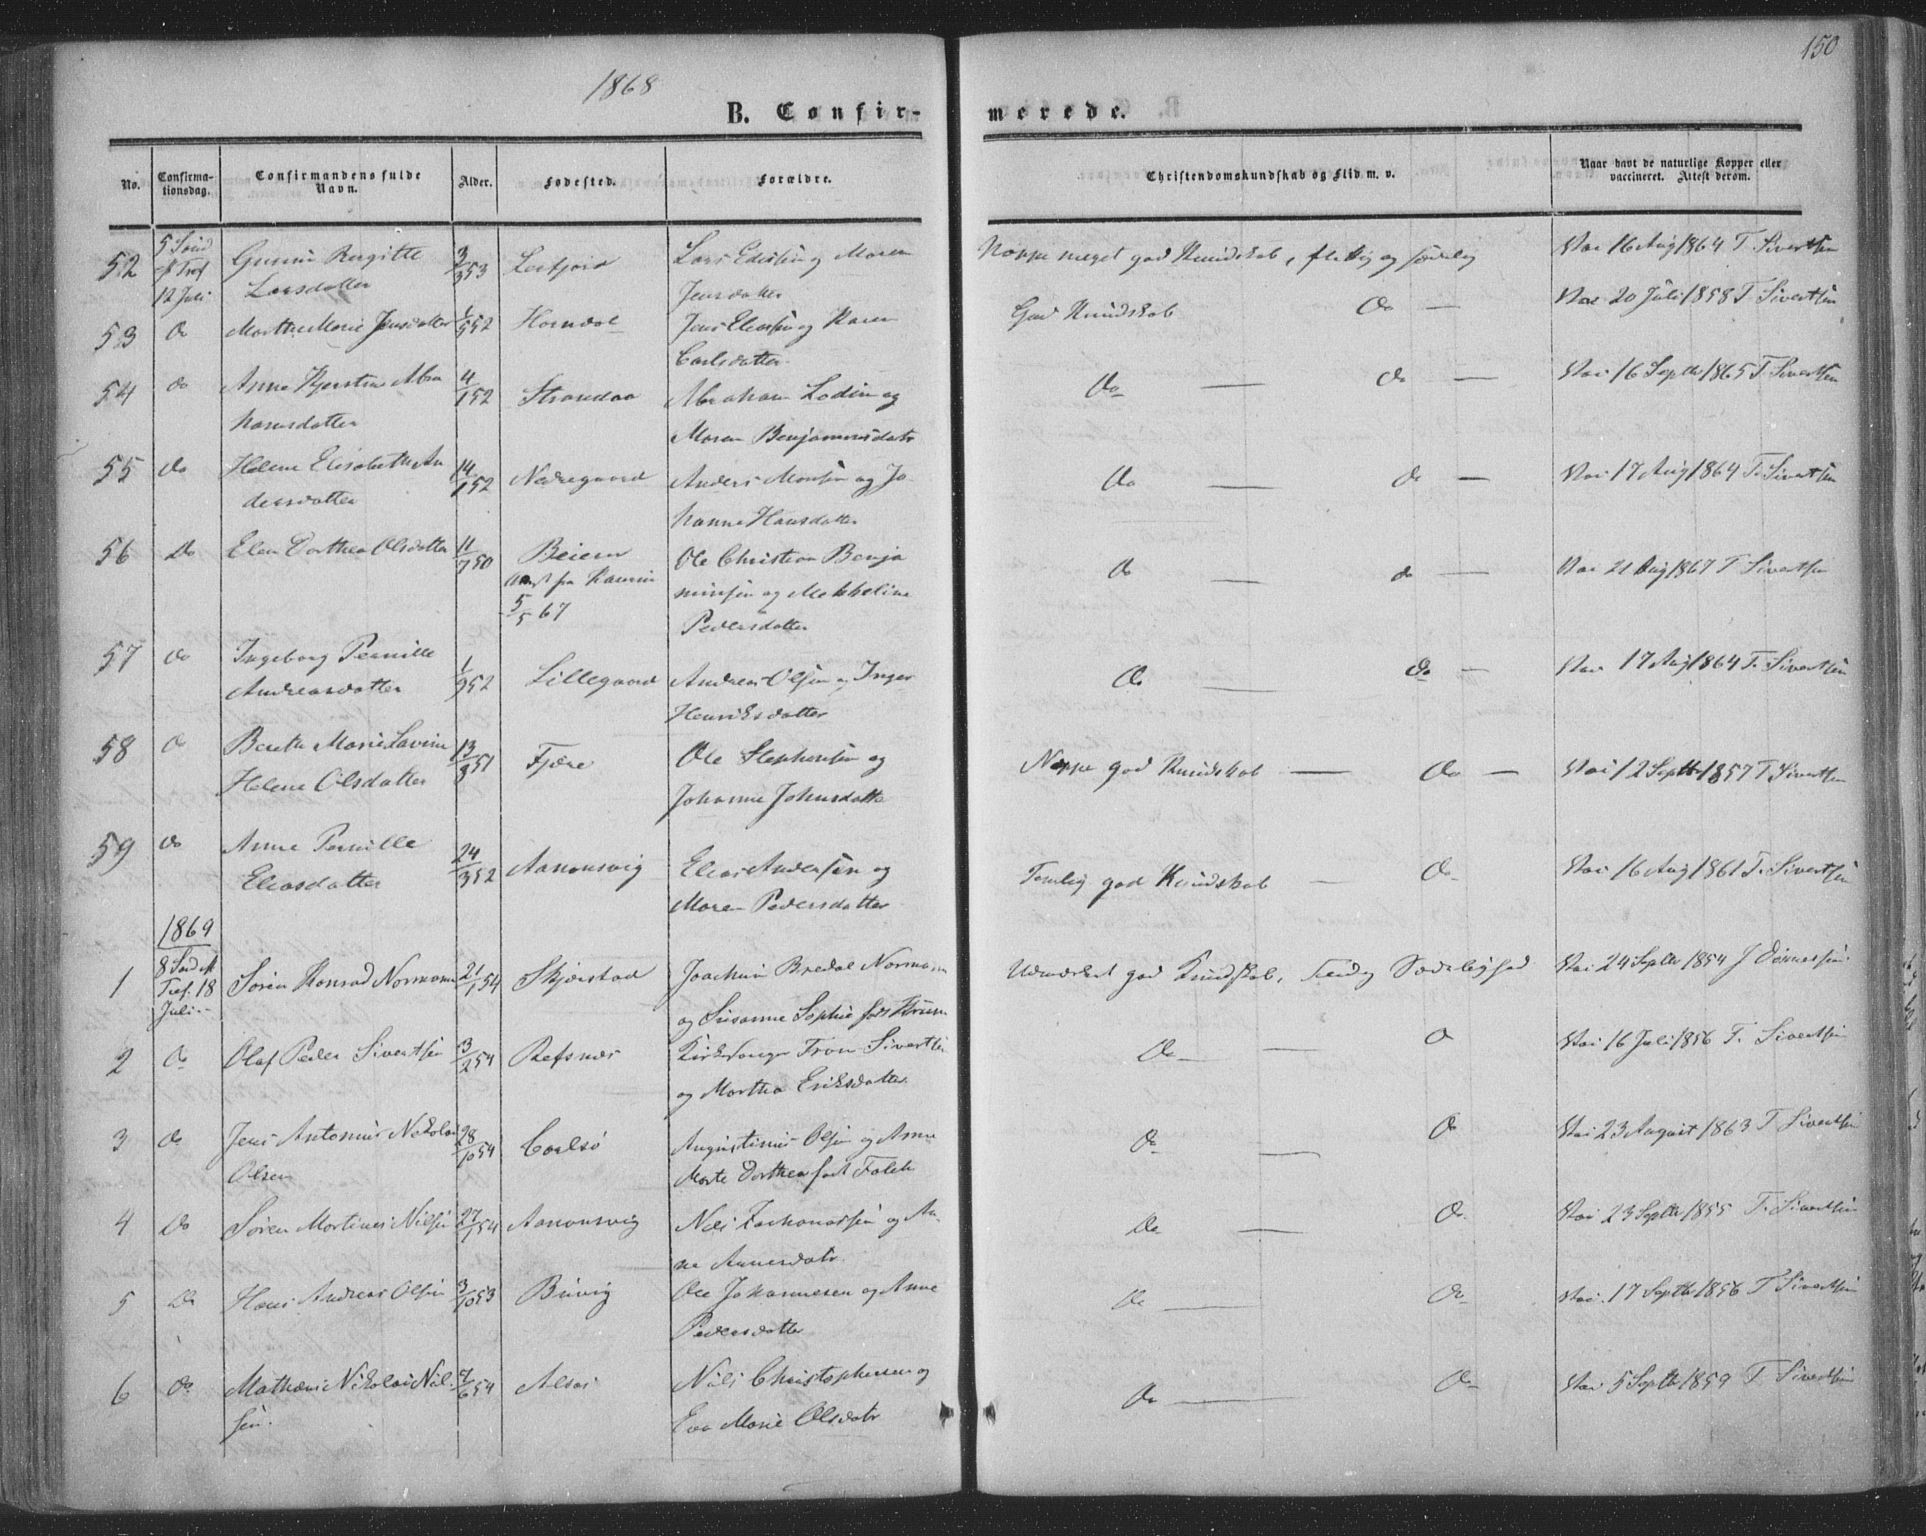 150
1868
B. Confir-
merede.
No.
Confirma-
tionsdag.
Confirmandens fulde
Navn.
Alder.
Fødested.
Forældre.
Christendomskundskab og Flid m. v.
Naar havt de naturlige Kopper eller
vaccineret. Attest derom.
52
5 Sønd
ef Tref
12 Juli
Gunni Birgitte
Larsdatter
3/353
Leifjord
Lars og Maren
Jensdatter
Noppe meget god Kundskab, flittig og sædelig
Vac 16 Aug 1864 T. Sivertsen
53
Do
Marthe Marie Jensdatter
1/552
Horndal
Jens Eliassen og Karen
Carlsdatter
God Kundskab
Do —
Vac 20 Juli 1858 T. Sivertsen
54
do
Anne Kjerstine Abra
hamsdatter
4/152
Strandaa
Abraham Lodin og
Maren Benjaminsdatr
Do — do —
Vac 16 Septb 1865 T. Sivertsen
55
do
Helene Elisabeth An
dersdatter
14/152
Nedregaard
Anders Monsen og Jo
hanne Hansdatter
Do — do —
Vac 17 Aug 1864 T. Sivertsen
56
Do
Elen Dorthea Olsdatter
11/750
Beieren
fra
5/5 67
Ole Christian Benja
minsen og Makkeline
Pedersdatter
Do — do —
Vac 21 Aug 1867 T. Sivertsen
57
do
Ingeborg Pernille
Andreasdatter
1/952
Lillegaard
Andreas Olsen og Inger
Henriksdatter
Do — Do —
Vac 17 Aug 1864 T. Sivertsen
58
Do
Berith Marie Lavine
Helene Olsdatter
13/851
Fjære
Ole Stephensen og
Johanne Johnsdatter
Noppe god Kundskab — Do —
Vac 12 Septb 1857 T. Sivertsen
59
do
Anne Pernille
Eliasdatter
24/352
Aanonsvig
Elias Andersen og
Maren Pedersdatter
Temlig god Kundskab — Do
Vac 16 Aug 1861 T. Sivertsen
1869
1
8 Sønd ef
Tref. 18
Juli
Søren Konrad Normann
21/154
Skjerstad
Joachim Bredal Normann
og Susanne Sophie født
Udmærket god Kundskab, Sædelighed
Vac 24 Septb 1854 J
2
Do
Olaf Peder Sivertsen
3/254
Refsnæs
Kirkesanger Tron Sivertsen
og Martha Eriksdatter
Do — Do
Vac 16 Juli 1856 T. Sivertsen
3
Do
Jens Antonius Nekolai
Olsen
28/1054
Carlsø
Augustinus Olsen og Anne
Marte Dorthea født Falch
Do — Do
Vac 23 August 1863 T. Sivertsen
4
Do
Søren Martinus Nielsen
27/154
Aanonsvig
Niels Zachariassen og An-
ne Aanesdatr
Do — Do
Vac 23 Septb 1855 T. Sivertsen
5
Do
Hans Andreas Olsen
3/1053
Buvig
Ole Johannesen og Anne
Pedersdatter
Do — Do
Vac 17 Septb 1856 T. Sivertsen
6
Do
Mathæus Nikolai Niel-
sen
7/654
Alsos
Niels Christophersen og
Eva Marie Olsdatr
Do — Do
Vac 5 Septb 1859 T. Sivertsen